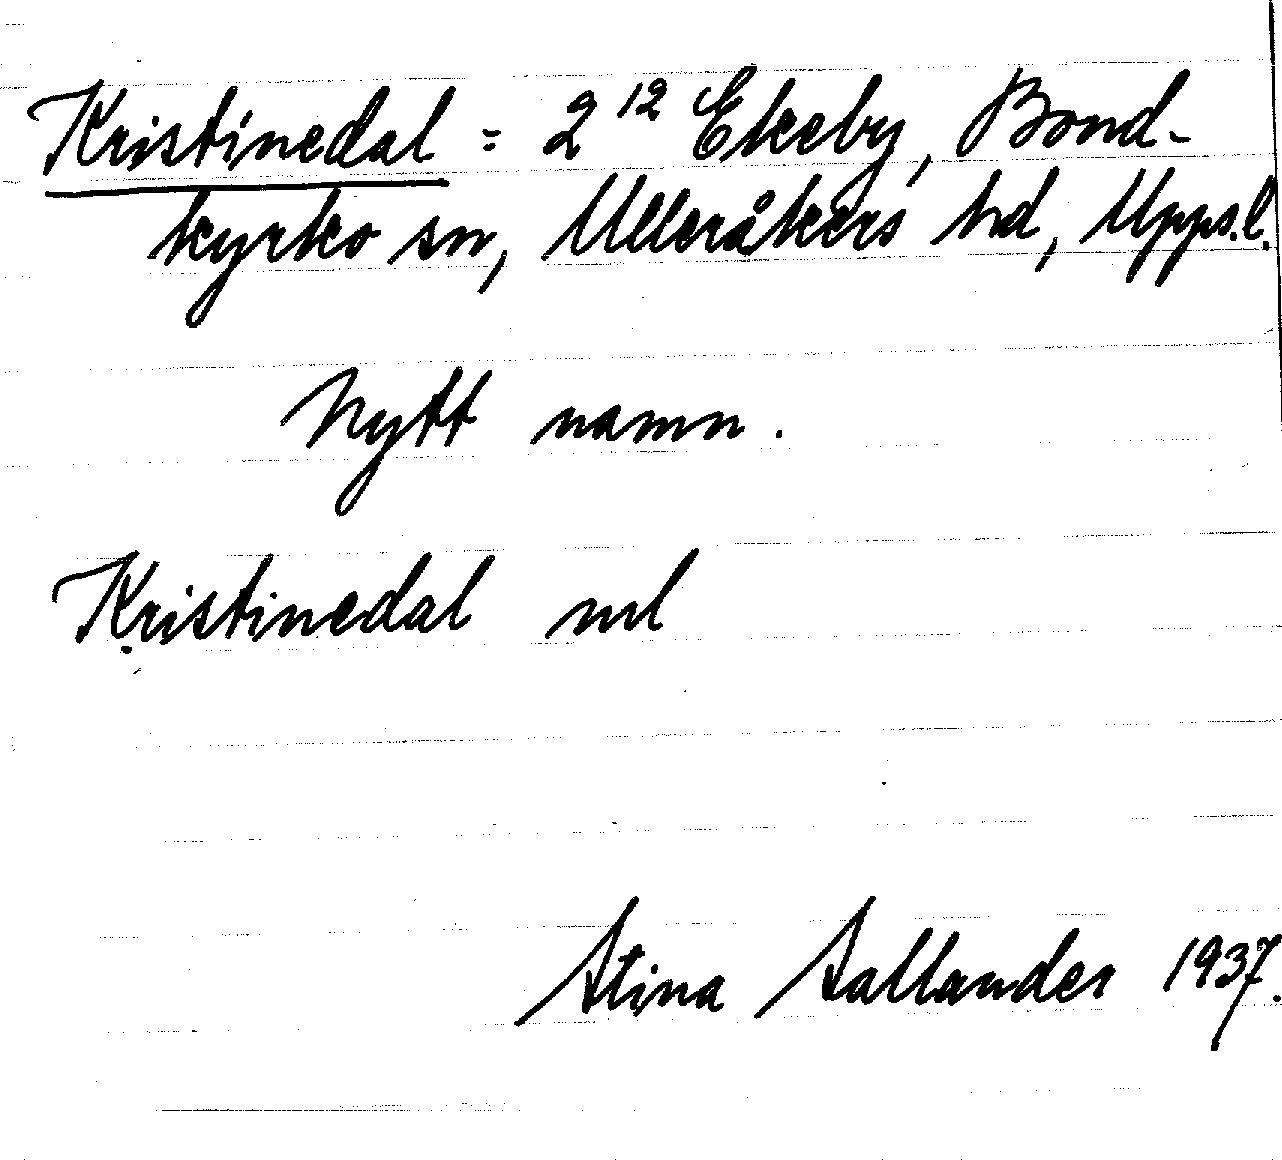 Kristinedal = 2¹² Ekeby, Bond-
kyrko sn, Ulleråkers hd, Upps.l.
Nytt namn.
Kristinedal ml
Stina Sallander 1937.